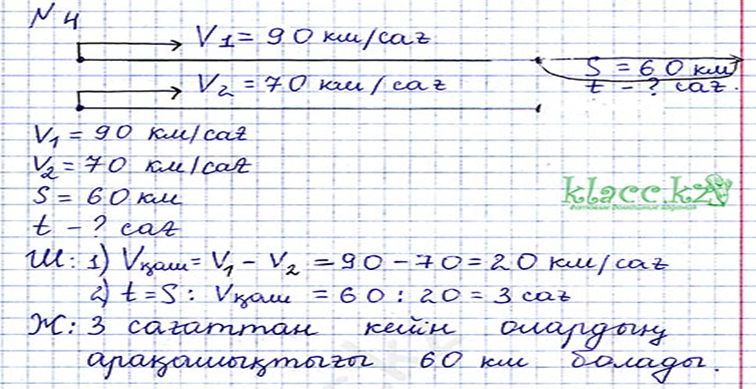 № 4
V1 = 90 км/сағ
V2 = 70 км/сағ
S = 60 км
t - ? сағ.
V1 = 90 км/сағ
V2 = 70 км/сағ
S = 60 км
t - ? сағ
klacc.kz
Ш: 1) Vқаш = V1 - V2 = 90 - 70 = 20 км/сағ
2) t = S : Vқаш = 60 : 20 = 3 сағ
Ж: 3 сағаттан кейін олардың
арақашықтығы 60 км болады.